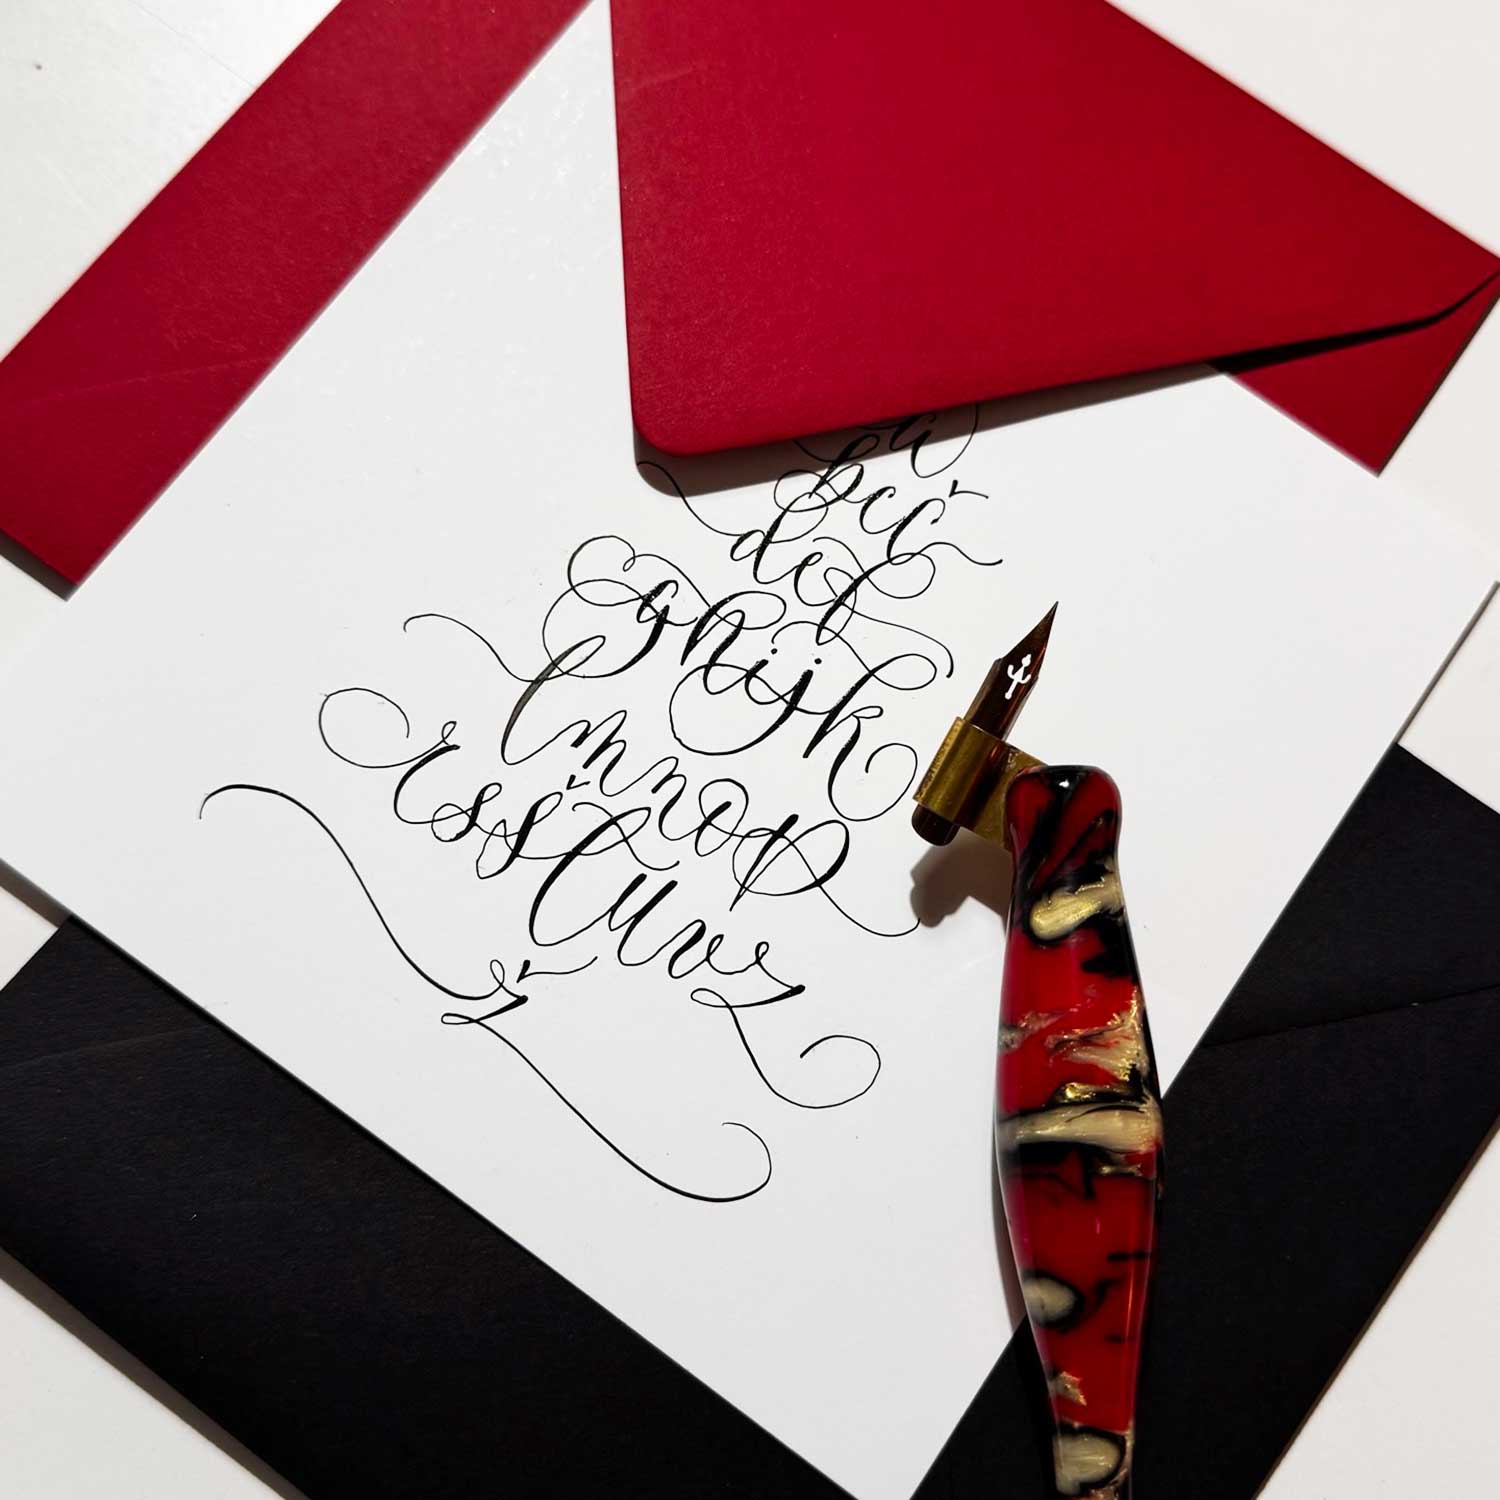 a
b c č
d e f
g h i j k
l m n o p
r s š t u v z
ž